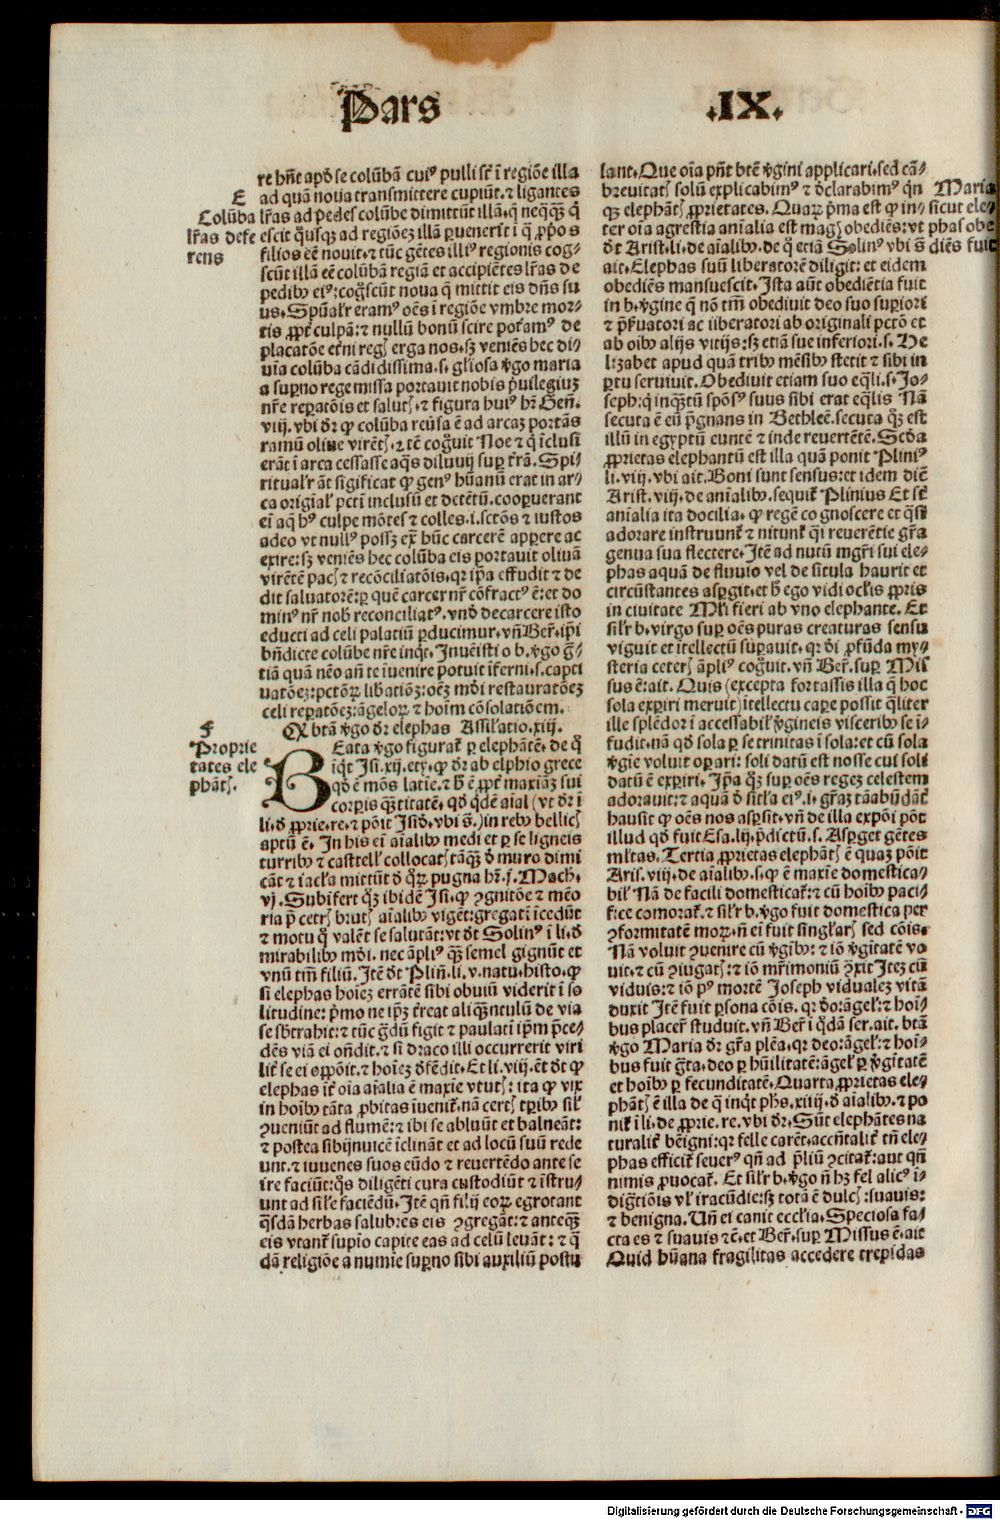 Pars
.IX.
re hñt apd̓ se colūbā cuiꝰ pulli sūt ī regiōe illa
E
ad quā noua transmittere cupiūt.⁊ ligantes
Colūba
lr̄as ad pedes colūbe dimittūt illā.q̄ neqq̄ꝫ q̄
lr̄as defe
escit q̄usqꝫ ad regiōeꝫ illā ꝑuenerit ī q̄ ꝓp̄os
rens
filios eē nouit.⁊ tūc gētes illiꝰ regionis cog⸗
scūt illā eē colūbā regiā et accipiētes lr̄as de
pedibꝰ eiꝰ:cog̃scūt noua q̄ mittit eis dn̄s su
us.Spūal'r eramꝰ oēs ī regiōe vmbre mor⸗
tis ꝓpt̄ culpā:⁊ nullū bonū scire pot̄amꝰ de
placatōe et̄ni reg̃ erga nos.sꝫ veniēs hec di⸗
uīa colūba cādidissima.s.gl'iosa v̓go maria
a suꝑno rege missa portauit nobis p̓uilegiuꝫ
nr̄e reꝑatōis et salut̃.⁊ figura huiꝰ hr̄ Gen̄.
viij.vbi dr̄ ꝙ colūba reūsa ē ad arcaꝫ portās
ramū oliue virēt̃.⁊ tc̄ cog̃uit Noe ⁊ q̄ īclusi
erāt ī arca cessasse aq̄s diluuij suꝑ t̄rā.Spi⸗
ritual'r āt sigificat ꝙ genꝰ hūanū erat in ar⸗
ca origial' pcti inclusū et detētū.cooꝑuerant
ei aq̄ hꝰ culpe mōtes ⁊ colles.i.sctōs ⁊ iustos
adeo vt nullꝰ possꝫ ex̄ hūc carcerē apꝑere ac
exire:sꝫ veniēs hec colūba eis portauit oliuā
virētē pac̃ ⁊ recōciliatōis.qꝛ ip̄a effudit ⁊ de
dit saluatorē:ꝑ quē carcer nr̄ cōfractꝰ ē:et do
minꝰ nr̄ nob̃ reconciliatꝰ.vnd̓ decarcere isto
educti ad celi palatiū ꝑducimur.vn̄ Ber̄.ip̄i
bn̄dicte colūbe nr̄e inq̄t.Inuēisti o b.v̓go g̃⸗
tiā quā nēo an̄ te īuenire potuit īferni.s.capti
uatōeꝫ:pctōꝝ lib̄atiōꝫ:oēꝫ mōi restauratōeꝫ
celi reꝑatōeꝫ:āgeloꝝ ⁊ hoīm cōsolatiōem.
F
Ꝙ btā v̓go dr̄ elephas Assil'atio.xiij.
Proprie
tates ele
phāt̃.
BEata v̓go figurat̄ ꝑ elephātē.de q̄
īq̄t Isi.xij.ety.ꝙ dr̄ ab elphio grece
qd̓ ē mōs latie.⁊ h̄ ē ꝓpt̄ maxiāꝫ sui
corꝑis q̄ꝫtitatē.qd̓ q̄dē aīal (vt dr̄ i
li.d̓ ꝓprie.re.⁊ pōit Isid̓.vbi s̄.)in rebꝰ bellic̃
aptū ē.In his ei aīalibꝰ medi et ꝑ se ligneis
turribꝰ ⁊ castell' collocat̃ tāq̄ꝫ d̓ muro dimi
cāt ⁊ iacl'a mittūt d̓ q̄ꝝ pugna hr̄.j.Mach.
vj.Subifert q̄ꝫ ibidē Isi.ꝙ ꝯgnitōe ⁊ mēo
ria p̄ cet̃ brut̃ aīalibꝰ vigēt:gregati īcedūt
⁊ motu q̄ valēt se salutāt:vt dt̄ Solinꝰ i li.d̓
mirabilibꝰ mōi.nec āpliꝰ q̄ꝫ semel gignūt et
vnū tm̄ filiū.Itē dt̄ Plin̄.li.v.natu.histo.ꝙ
si elephas hoīeꝫ errātē sibi obuiū viderit ī so
litudine:p̓mo ne ip̄ꝫ t̄reat aliq̄ꝫntulū de via
se sbtrahit:⁊ tūc g̃dū figit ⁊ paulati ip̄m p̄ce⸗
dēs viā ei on̄dit.⁊ si draco illi occurrerit viri
lit̄ se ei oppōit.⁊ hoīeꝫ dfēdit.Et li.viij.ēt dt̄ ꝙ
elephas iꝉ oīa aīalia ē maxie vtut̃:ita ꝙ vix
in hoībꝰ tāta ꝓbitas īuenit̄.nā cert̃ tꝑibꝰ sil'
ꝯueniūt ad flumē:⁊ ibi se abluūt et balneāt:
⁊ postea sibijnuicē īclināt et ad locū suū rede
unt.⁊ iuuenes suos eūdo ⁊ reuertēdo ante se
ire faciūt:q̄s diligēti cura custodiūt ⁊ īstru⸗
unt ad sil'e faciēdū.Itē qn̄ filij eoꝝ egrotant
q̄sdā herbas salubres eis ꝯgregāt:⁊ anteqꝫ
eis vtant̄ supīo capite eas ad celū leuāt:⁊ q̄
dā religiōe a numīe suꝑno sibi auxiliū postu
lant.Que oīa pn̄t btē v̓gini applicari.sed cā⸗
breuitat̃ solū explicabimꝰ ⁊ d̓clarabimꝰ q̄n
Maria
qꝫ elephāt̃ ꝓprietates.Quaꝝ p̓ma est ꝙ in⸗
sicut ele⸗
ter oīa agrestia aīalia est mag̃ obediēs:vt
phas obe
dt̄ Arist.li.de aīalibꝰ.de q̄ etiā Solinꝰ vbi s̄
diēs fuit
ait.Elephas suū liberatorē diligit:et eidem
obediēs mansuescit.Ista aūt obediētia fuit
in b.v̓gine q̄ nō tm̄ obediuit deo suo suꝑiori
⁊ p̄ꝼuatori ac liberatori ab originali pctō et
ab oībꝰ alijs vitijs:sꝫ etiā sue inferiori.s.He
lizabet apud quā tribꝰ mēsibꝰ stetit ⁊ sibi in
ꝑtu seruiuit.Obediuit etiam suo eq̄li.s.Jo⸗
seph:q̄ inq̄ꝫtū spōsꝰ suus sibi erat eq̄lis Nā
secuta ē eū p̄gnans in Bethleē.secuta q̄ꝫ est
illū in egyptū euntē ⁊ inde reuertētē.Scd̓a
ꝓprietas elephantū est illa quā ponit Pliniꝰ
li.viij.vbi ait.Boni sunt sensus:et idem diē
Arist.viij.de anīalibꝰ.sequit̄ Plinius Et sūt
anīalia ita docilia.ꝙ regē cognoscere et q̄si
adorare instruunt̄ ⁊ nitunt̄ q̄i reuerētie gr̄a
genua sua flectere.Itē ad nutū mgr̄i sui ele⸗
phas aquā de fluuio vel de situla haurit et
circūstantes asꝑgit.et h̄ ego vidi ocl'is ꝓpris
in ciuitate Ml'i fieri ab vno elephante.Et
sil'r b.virgo suꝑ oēs puras creaturas sensu
viguit et itellectu suꝑauit.qꝛ di ꝓfūda my⸗
steria ceter̃ āpliꝰ cog̃uit.vn̄ Ber̄.suꝑ Mis
sus ē:ait.Quis (excepta fortassis illa q̄ hoc
sola exꝑiri meruit) itellectu caꝑe possit q̄liter
ille splēdor i accessabil' v̓gineis visceribꝰ se i⸗
fudit.nā qd̓ sola ꝑ se trinitas ī sola:et cū sola
v̓gīe voluit oꝑari:soli datū est nosse cui soli
datū ē exꝑiri.Ip̄a q̄ꝫ suꝑ oēs regeꝫ celestem
adorauit:⁊ aquā d̓ sitl'a eiꝰ.i.gr̄aꝫ tāabūdāt̄
hausit ꝙ oēs nos asꝑsit.vn̄ de illa expōi pōt
illud qd̓ fuit Esa.lij.p̓dictū.s.Asꝑget gētes
ml'tas.Tertia ꝓprietas elephāt̃ ē quaꝫ pōit
Aris.viij.de aīalibꝰ.s.ꝙ ē maxie domestica⸗
bil' Nā de facili domesticat̄:⁊ cū hoībꝰ paci⸗
fice comorat̄.⁊ sil'r b.v̓go fuit domestica per
ꝯformitatē moꝝ.n̄ ei fuit singl'ar̃ sed cōis.
Nā voluit ꝯuenire cū v̓gībꝰ:⁊ iō v̓gitatē vo
uit.⁊ cū ꝯiugat̃:⁊ iō mr̄imoniū ꝯxit Iteꝫ cū
viduis:⁊ iō pꝰ mortē Joseph vidualeꝫ vitā
duxit Itē fuit ꝑsona cōis.qꝛ do:āgel':⁊ hoī⸗
bus placer̄ studuit.vn̄ Ber̄ ī q̄dā ser.ait.btā
v̓go Maria dr̄ gr̄a plēa.qꝛ deo:āgel':⁊ hoī⸗
bus fuit g̃ta.deo ꝑ hūilitatē:āgel' ꝑ v̓gītatē
et hoībꝰ ꝑ fecunditatē.Quarta ꝓprietas ele⸗
phāt̃ ē illa de q̄ inq̄t phs.xiiij.d̓ aīalibꝰ.⁊ po
nit̄ ī li.de ꝓprie.re.vbi dr̄.Sūt elephātes na
turalit̄ beīgni:qꝛ felle carēt.accn̄talit̄ tn̄ ele⸗
phas efficit̄ seuerꝰ qn̄ ad p̄liū ꝯcitat̄:aut qn̄
nimis ꝓuocat̄.Et sil'r b.v̓go n̄ hꝫ fel alicꝰ i⸗
dig̃tiōis vl' iracūdie:sꝫ tota ē dulc̃:suauis:
⁊ benigna.Un̄ ei canit eccl'ia.Speciosa fa⸗
cta es ⁊ suauis ⁊c̄.et Ber̄.suꝑ Missus ē.ait
Quid hūana fragilitas accedere trepidas
Digitalisierung gefördert durch die Deutsche Forschungsgemeinschaft - DFG